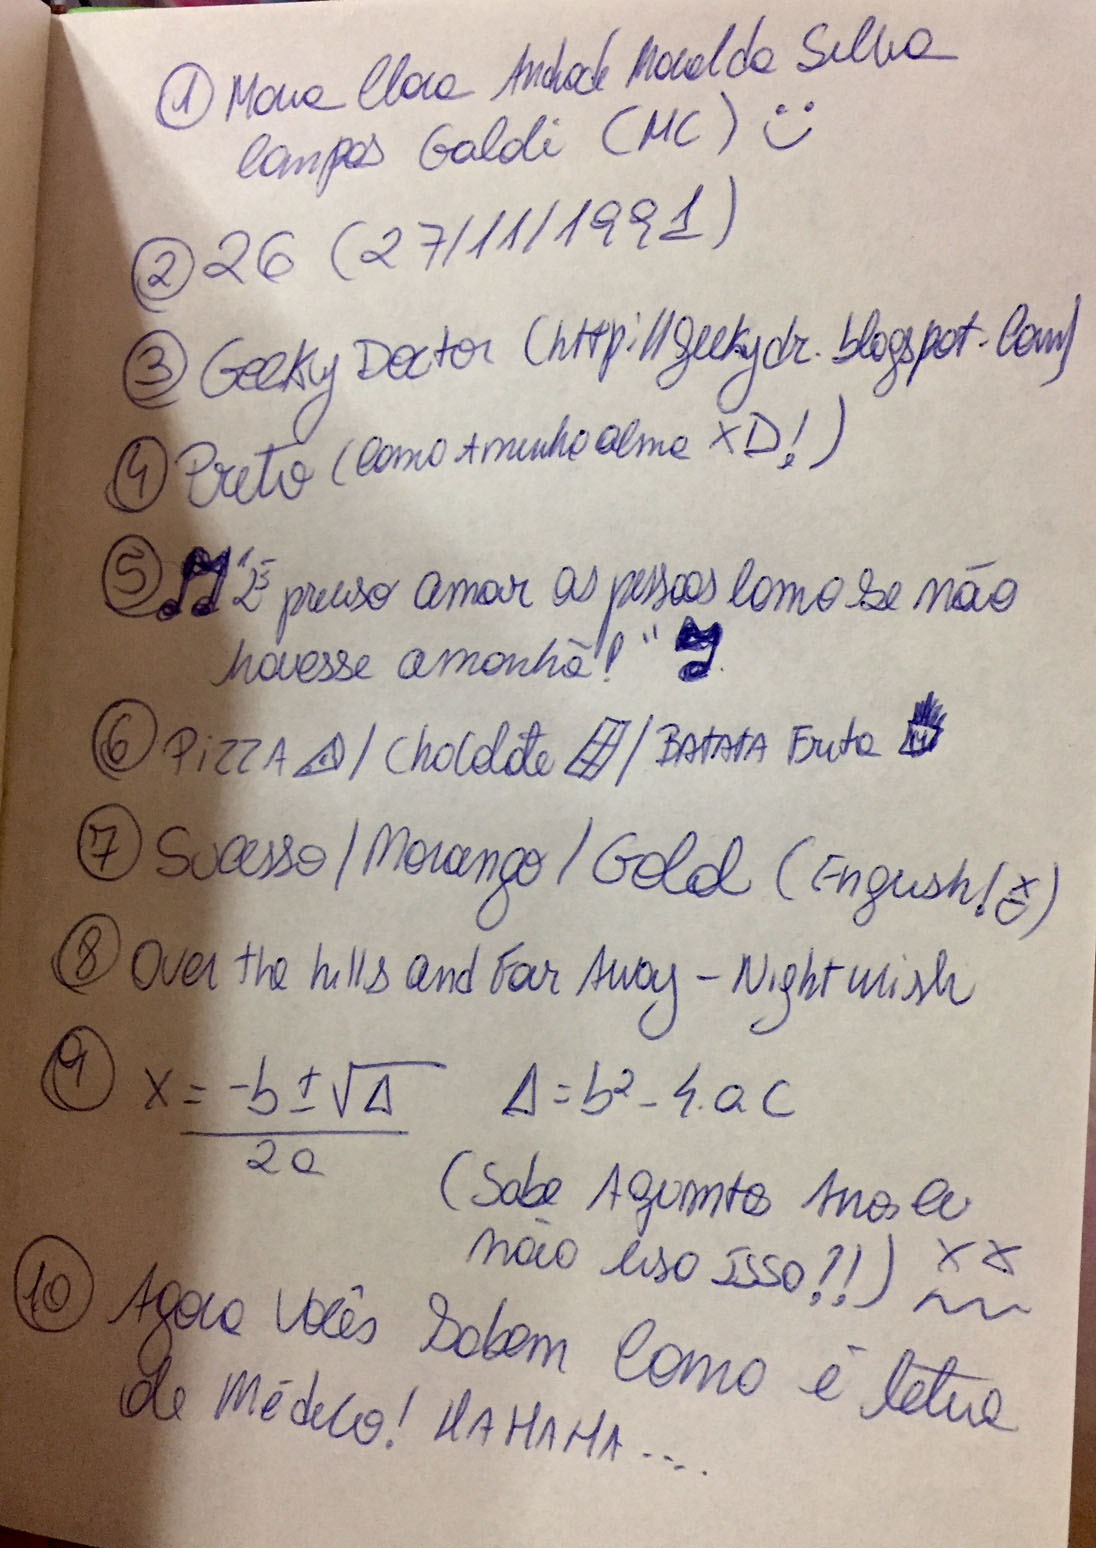 ① Maria Clara Andrade Moral da Silva
Campos Galdi (MC)
② 26 (27/11/1991)
③ Geeky Doctor (http://geekydr.blogspot.com)
④ Preto (como minha alma XD!)
⑤ "É preciso amar as pessoas como se não
houvesse amanhã!"
⑥ Pizza / Chocolate / BATATA Frita
⑦ Sucesso / Morango / Gold (English!)
⑧ Over the hills and Far Away - Nightwish
⑨ x = -b ± √Δ Δ = b² - 4.a c
2a
(Sabe A quantos Anos eu
não uso ISSO?!!)
⑩ Agora vocês Sabem Como é letra
de Médico! HAHAHA....